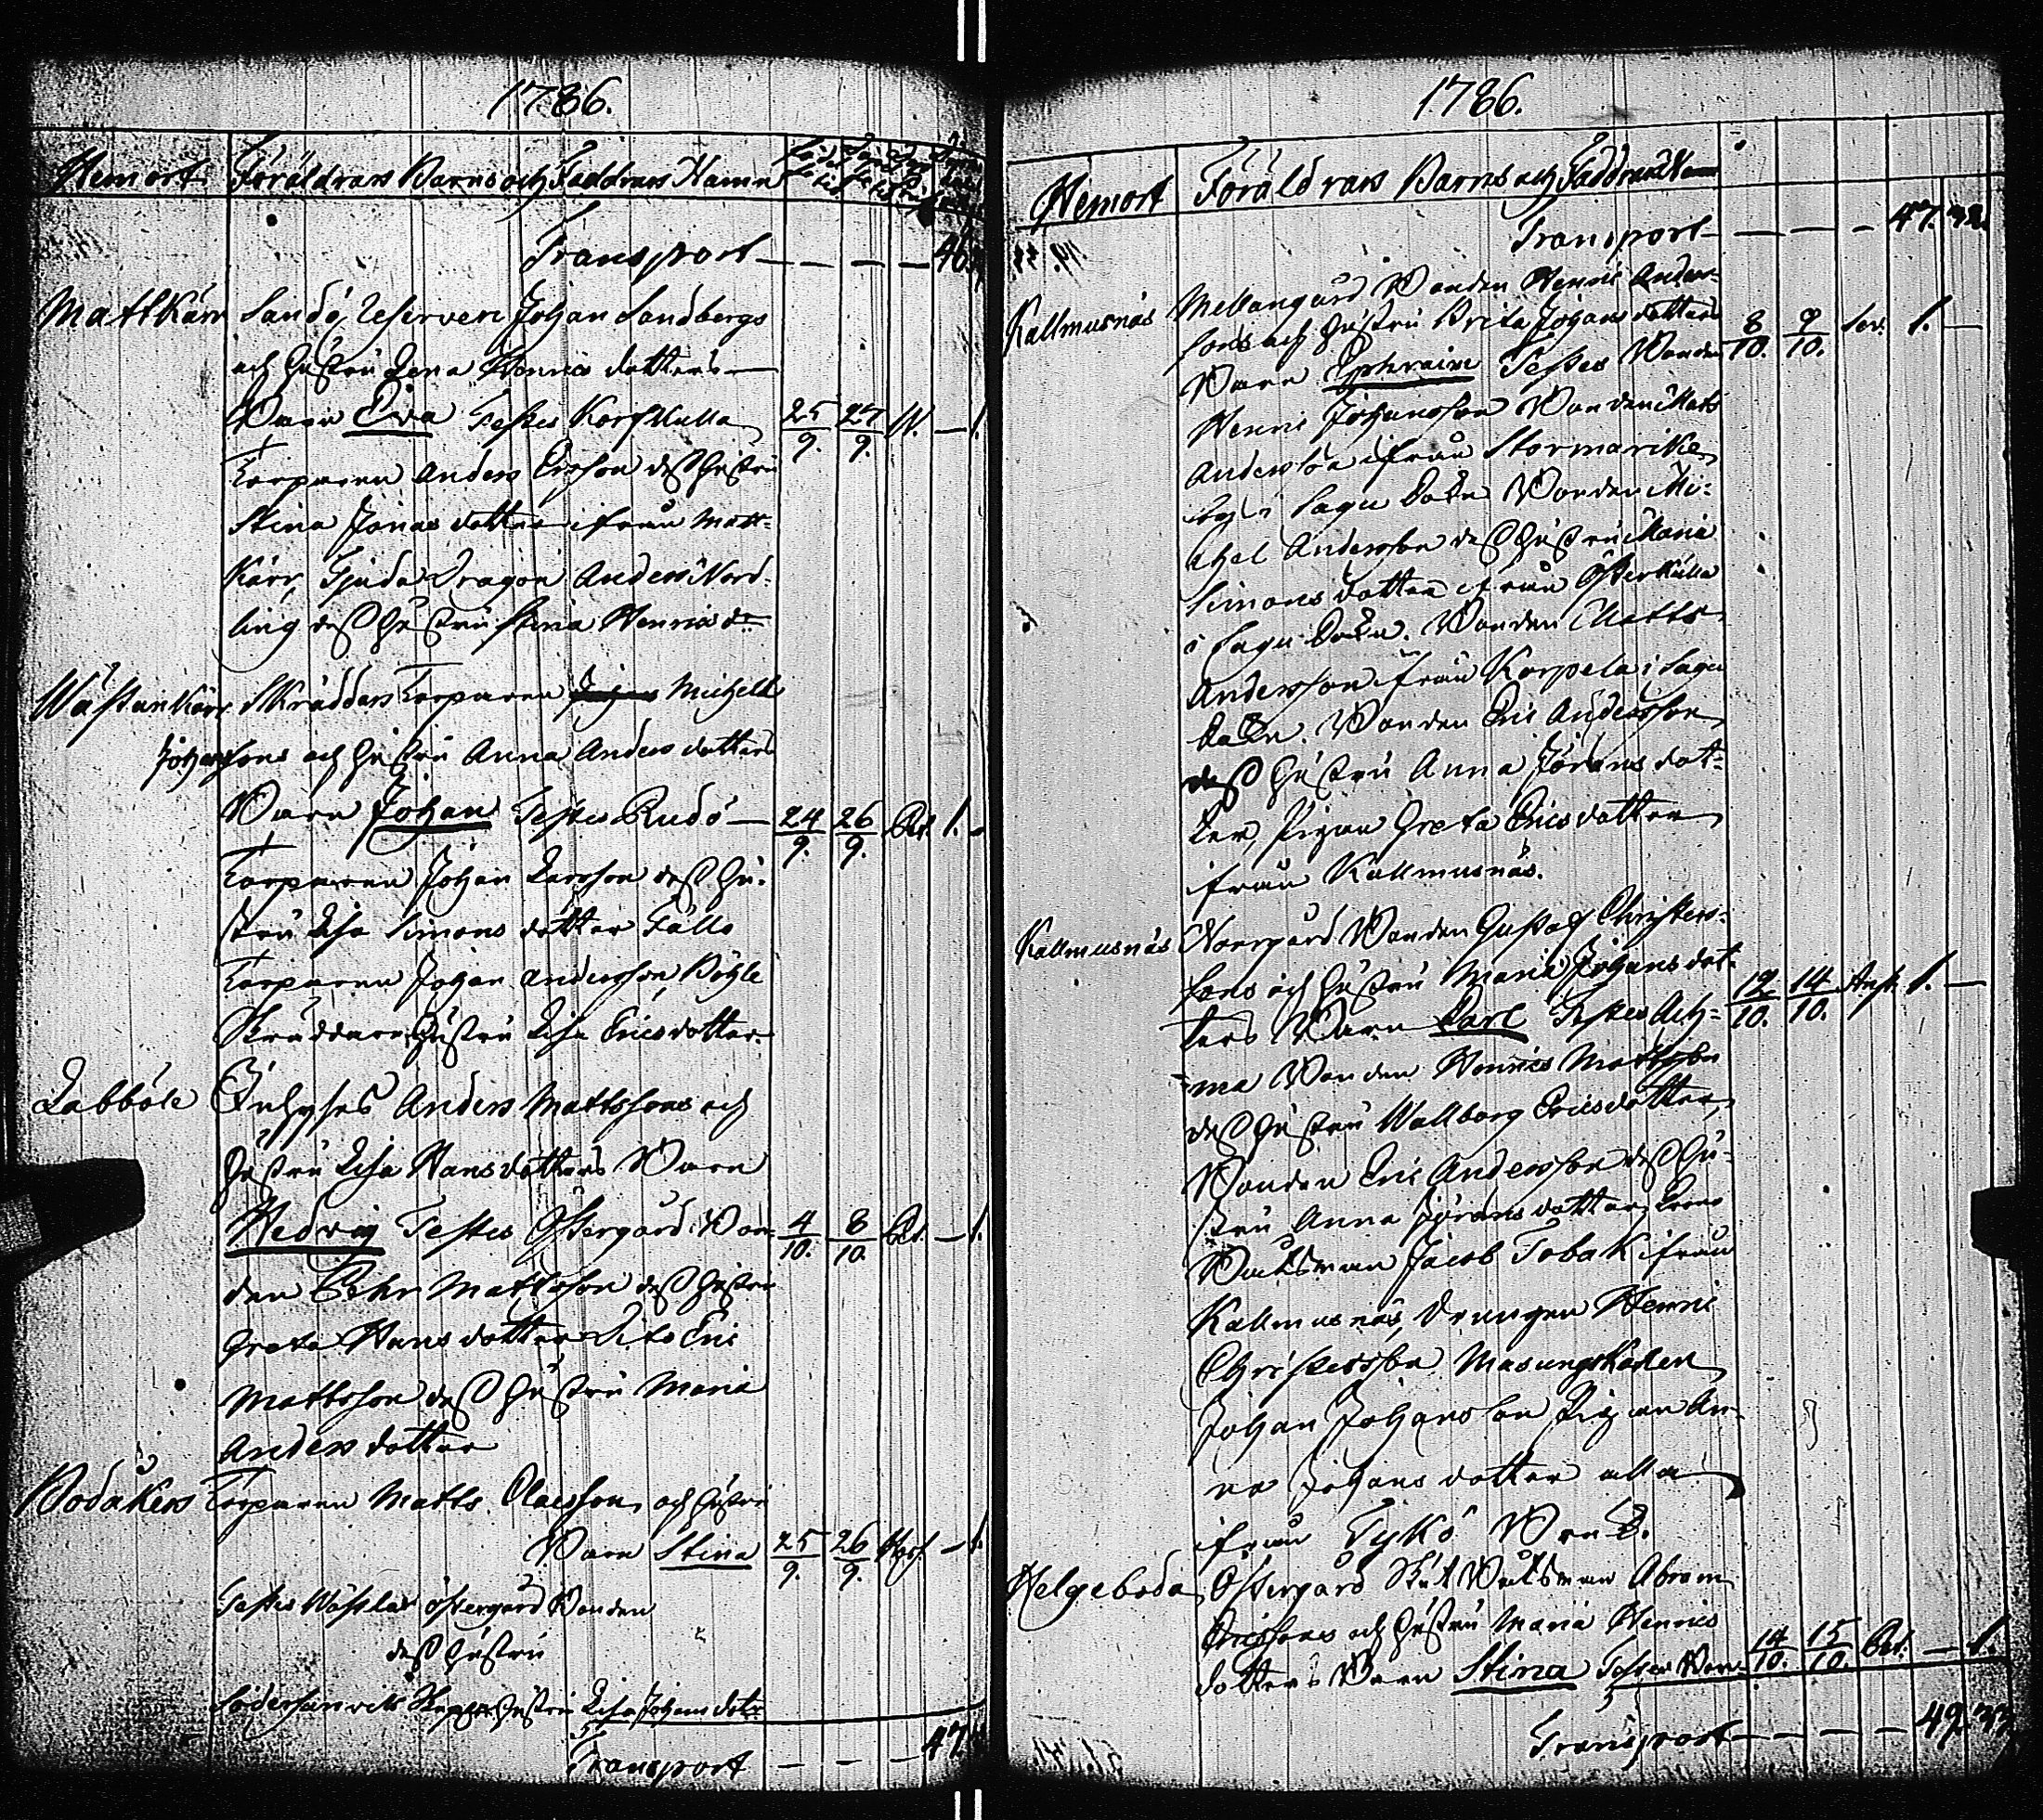 1786.
Hemort Föräldrars Barns och Faddrars Namn
Transport — — — — 46.
Mattkärr Sandö Reserven Johan Sandbergs
och Hustru Lena Henricsdotters
Barn Eva Testes Korskulla 25/9. 27/9. W. — 1.
Torparen Anders Ersson dess Hustru
Stina Jonasdotter ifrån Matt-
kärr, Tjuda Dragon Anders Nord-
ling dess Hustru Stina Henricsdr
Wästankärr Skräddars Torparen Michels
Johanssons och Hustru Anna Andersdotters
Barn Johan Testes Rudö — 24/9. 26/9. Bd. 1. —
Torparen Johan Larsson dess Hu-
stru Lisa Simonsdotter Fälls
Torparen Johan Andersson, Böhle
Skräddare Hustru Lisa Ericsdotter
Labböle Inhyses Anders Mattssons och
Hustru Lisa Hansdotters Barn
Hedvig Testes Östergård Bon- 4/10. 8/10. Bd. — 1.
den Pehr Mattsson dess Hustru
Greta Hansdotter Dito Eric
Mattsson dess Hustru Maria
Andersdotter
Bodåkers Torparen Matts Olavsson och Hustru
Barn Stina 25/9. 26/9. — 1.
Testes Wästlax östergård Bonden
dess Hustru
Södersunvik Hustru Lisa Johansdot-
Transport — — — 47.
1786.
Hemort Föräldrars Barns och Faddrars Namn
Transport — — — 47. 32.
Kallmusnäs Mellangård Bonden Henric Anders-
sons och Hustru Brita Johansdotters 8/10. 9/10. 1. —
Barn Ephraim Testes Bonden
Henric Johansson Bonden Matts
Andersson ifrån Stormarike
by i Sagu Sockn Bonden Mi-
chel Andersson dess Hustru Maria
Simonsdotter ifrån Österkulla
i Sagu Sockn. Bonden Matts
Andersson ifrån Korpela i Sagu
Sockn. Bonden Eric Andersson
dess Hustru Anna Jöransdot-
ter, Pigan Greta Ericsdotter
ifrån Kallmusnäs.
Kallmusnäs Norrgård Bonden Gustaf Christers-
sons och Hustru Maria Johansdot-
ters Barn Carl Testes Ach- 12/10. 14/10. 1. —
ma Bonden Henric Mattsson
dess Hustru Wallborg Ericsdotter,
Bonden Eric Andersson dess Hu-
stru Anna Jöransdotter,
Båtsman Jacob Tobak ifrån
Kallmusnäs, Drängen Henric
Christersson Masungskarlen
Johan Johansson Pigan An-
na Johansdotter alla
ifrån Tykö Bruk.
Helgeboda Östergård Båtsman Abram
Ericssons och Hustru Maria Henrics
dotters Barn Stina Testes Bon- 14/10. 15/10. Bd. — 1.
Transport — — — — 49. 33.